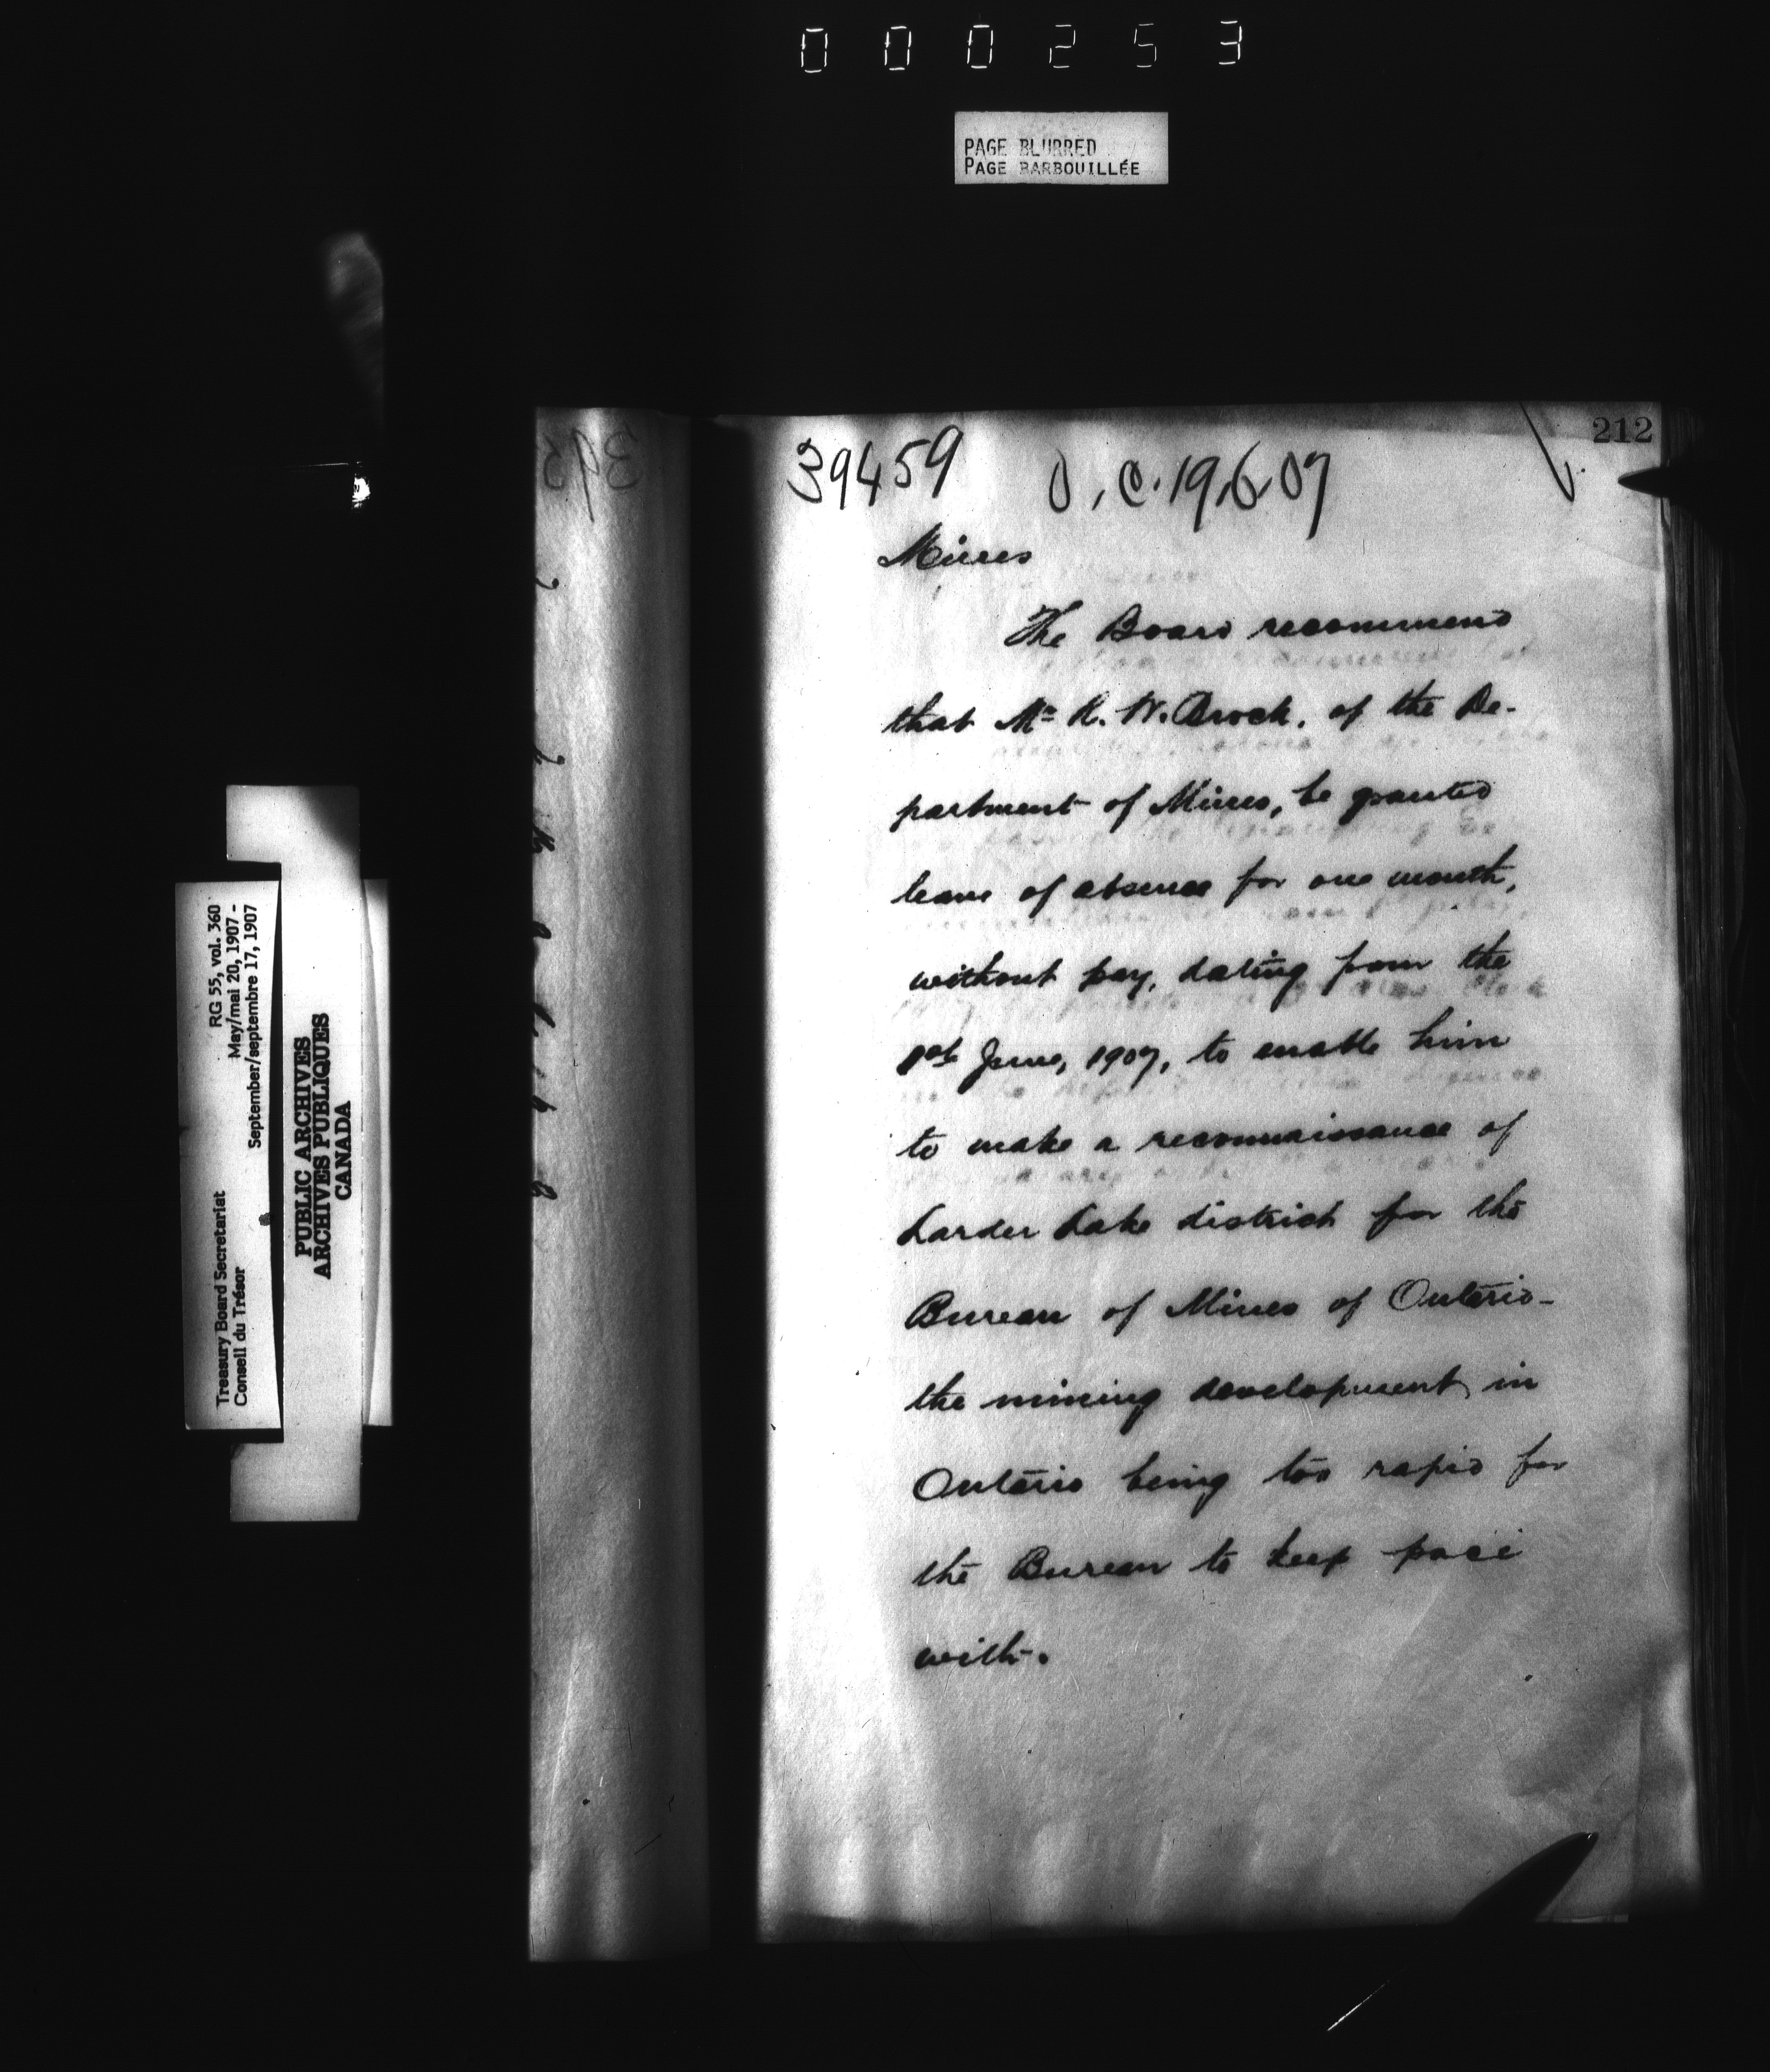 000253
PAGE BLURRED
PAGE BARBOUILLÉE
212
39459 O.C. 19.6.07
Mines
The Board recommend
that Mr R. W. Brock, of the De-
partment of Mines, be granted
leave of absence for one month,
without pay, dating from the
1st June, 1907, to enable him
to make a reconnaissance of
Larder Lake district for the
Bureau of Mines of Ontario-
the mining development in
Ontario being too rapid for
the Bureau to keep pace
with.
Treasury Board Secretariat RG 55, vol. 360
Conseil du Trésor May/mai 20, 1907 -
September/septembre 17, 1907
PUBLIC ARCHIVES
ARCHIVES PUBLIQUES
CANADA